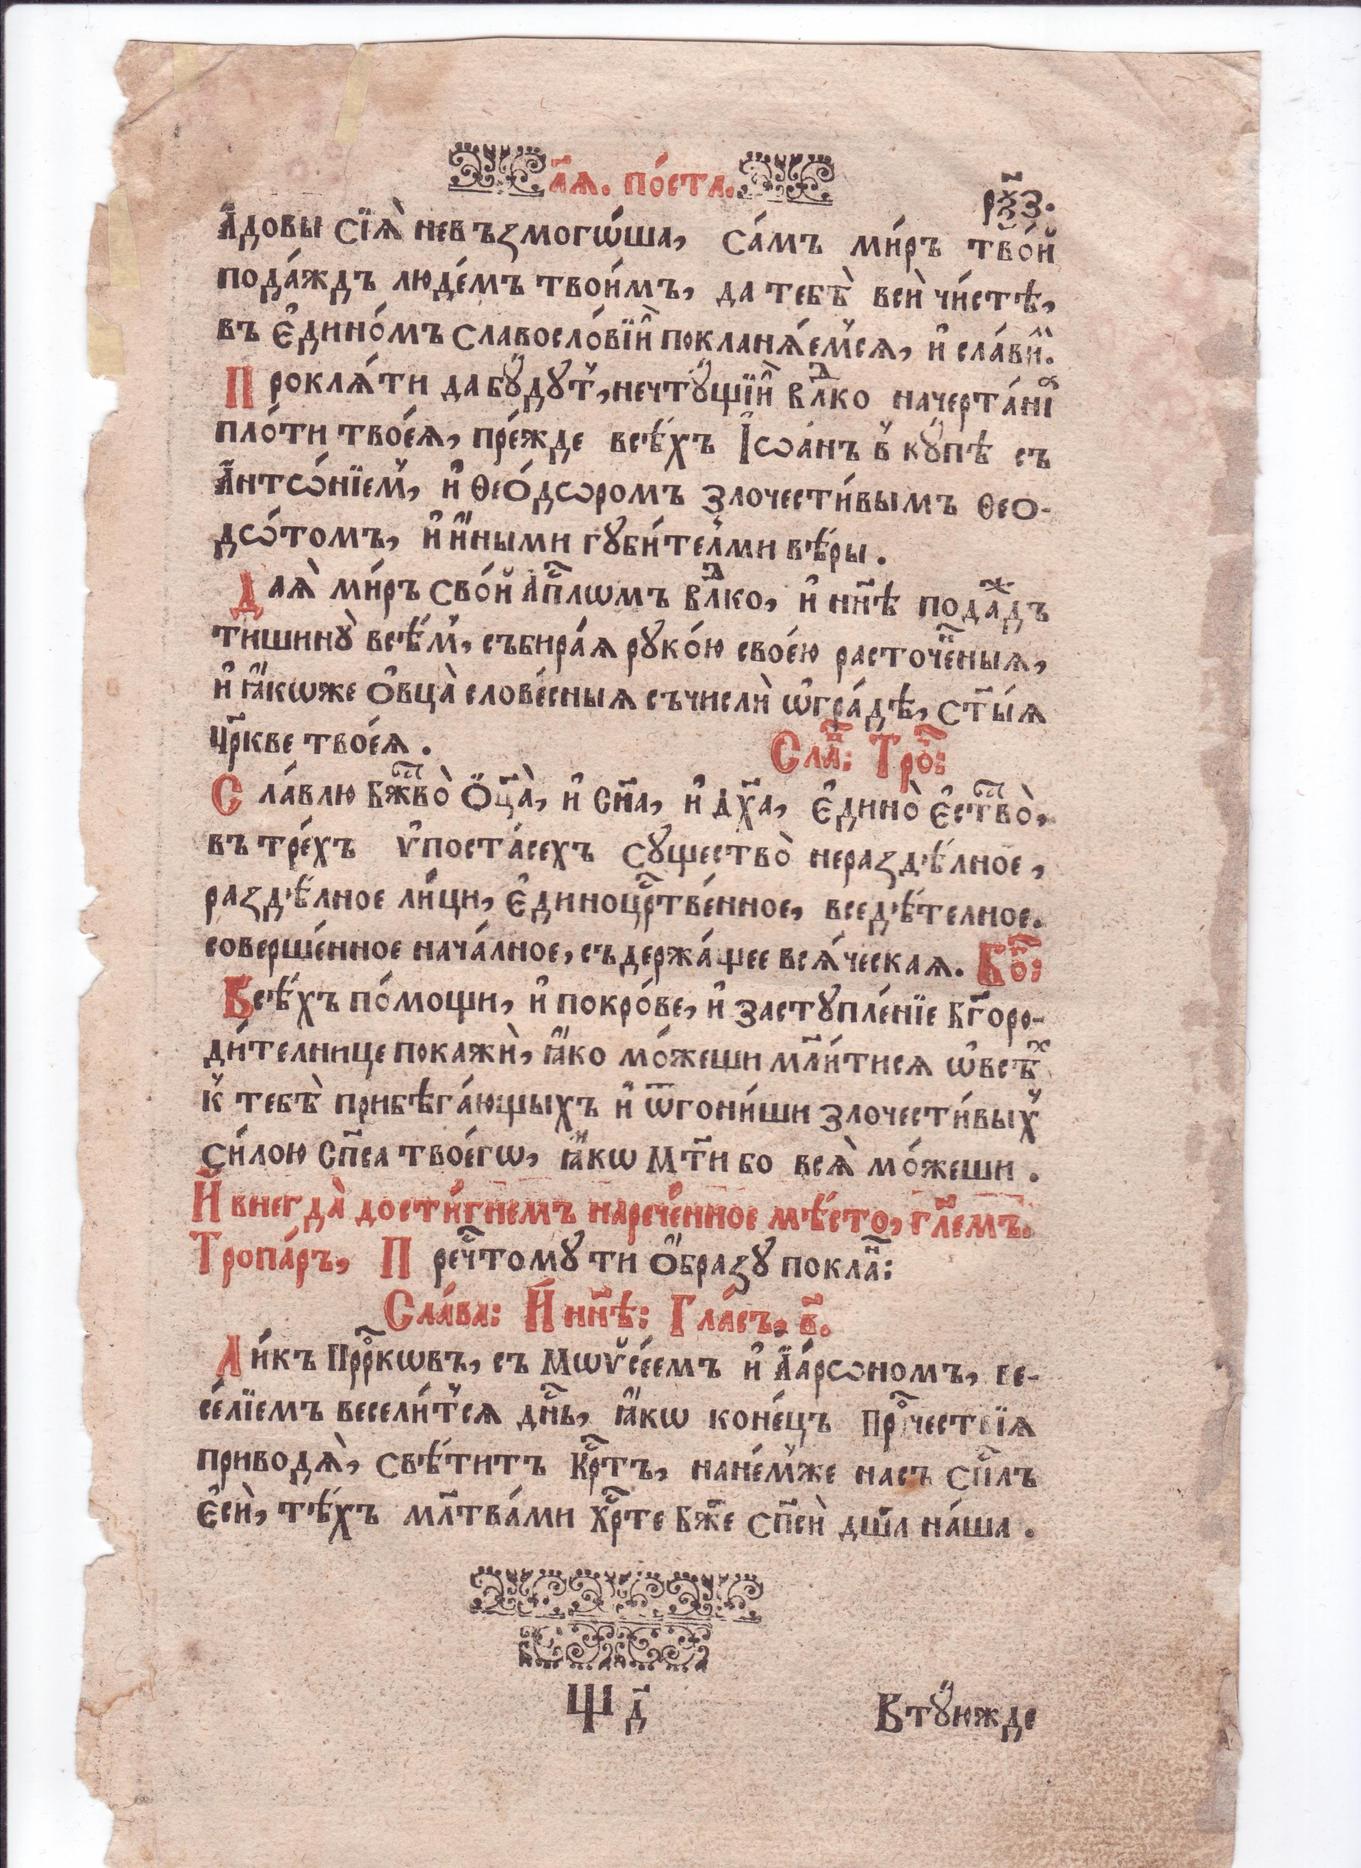 а҃ꙗ. по́ста.
рѯ҃з.
А҆́довы сїѧ̀ невъзмого́ша, са́мъ ми́ръ тво́й
пода́ждъ люде́мъ твои́мъ, да тебѣ̀ всѝ чи́стѣ,
въ є҆дино́мъ славосло́вїи покланѧ́емсѧ, и҆ сла́ви.
Проклѧ́ти да бꙋ́дꙋт, нечтꙋ́щїи влⷣко начерта́нїѧ
пло́ти твоеѧ̀, пре́жде всѣ́хъ І҆ѡа́нъ в кꙋ́пѣ съ
А҆нтѡ́нїем, и҆ Ѳео́дѡромъ злочести́вымъ Ѳео-
дѡ́томъ, и҆ и҆́ными гꙋби́телми вѣ́ры.
Даѧ̀ ми́ръ сво́й А҆п҃лѡмъ влⷣко, и҆ нн҃ѣ пода́ждъ
тишинꙋ̀ всѣ́м, събира́ѧ рꙋко́ю свое́ю расточе́ныѧ,
и҆ ꙗ҆́кѡже ѻ҆вца̀ слове́сныѧ съчислѝ ѡ҆гра́дѣ, ст҃ы́ѧ
Цр҃кве твое́ѧ.
Сла҃: Тро:
Сла́влю Бж҃тво̀ Ѻ҆ц҃а̀, и҆ Сн҃а, и҆ Дх҃а, є҆дино̀ є҆стⷭ҇во̀,
въ тре́хъ ѵ҆поста́сехъ сꙋщество̀ нераздѣ́лное,
раздѣ́лное ли́ци, є҆диноцрⷭ҇тве́нное, вседѣ́телное.
соверше́нное нача́лное, съдержа́щее всѧ́ческаѧ. Бо:
Всѣ́хъ по́мощи, и҆ покро́ве, и҆ застꙋпле́нїе Бг҃оро-
ди́телнице покажѝ, ꙗ҆́ко мо́жеши мл҃и́тисѧ ѡ҆ всѣⷯ
к тебѣ̀ прибѣга́ющыхъ и҆ ѿгони́ши злочести́выхъ
си́лою Сп҃са твое́гѡ, ꙗ҆́кѡ Мт҃и бо всѧ̀ мо́жеши.
И҆ внегда̀ дости́гнемъ нарече́нное мѣ́сто, гл҃емъ.
Тропа́ръ, Преч҇томꙋ ти ѻ҆́бразꙋ покла:
Сла́ва: И҆ нн҃ѣ: Гла́съ, в҃.
Ли́къ Прⷪ҇ркѡвъ, съ Мѡѵсе́емъ и҆ А҆а́рѡномъ, ве-
се́лїемъ весели́тсѧ дн҃ь, ꙗ҆́кѡ коне́цъ Прⷪ҇чествїѧ
приводѧ̀, свѣ́титъ Крⷭ҇тъ, на не́мже насъ сп҃лъ
є҆сѝ, тѣ́хъ мл҃тва́ми Хрⷭ҇те Бж҃е сп҃сѝ дш҃а на́ша.
Ѱ д҃
Втꙋ́южде